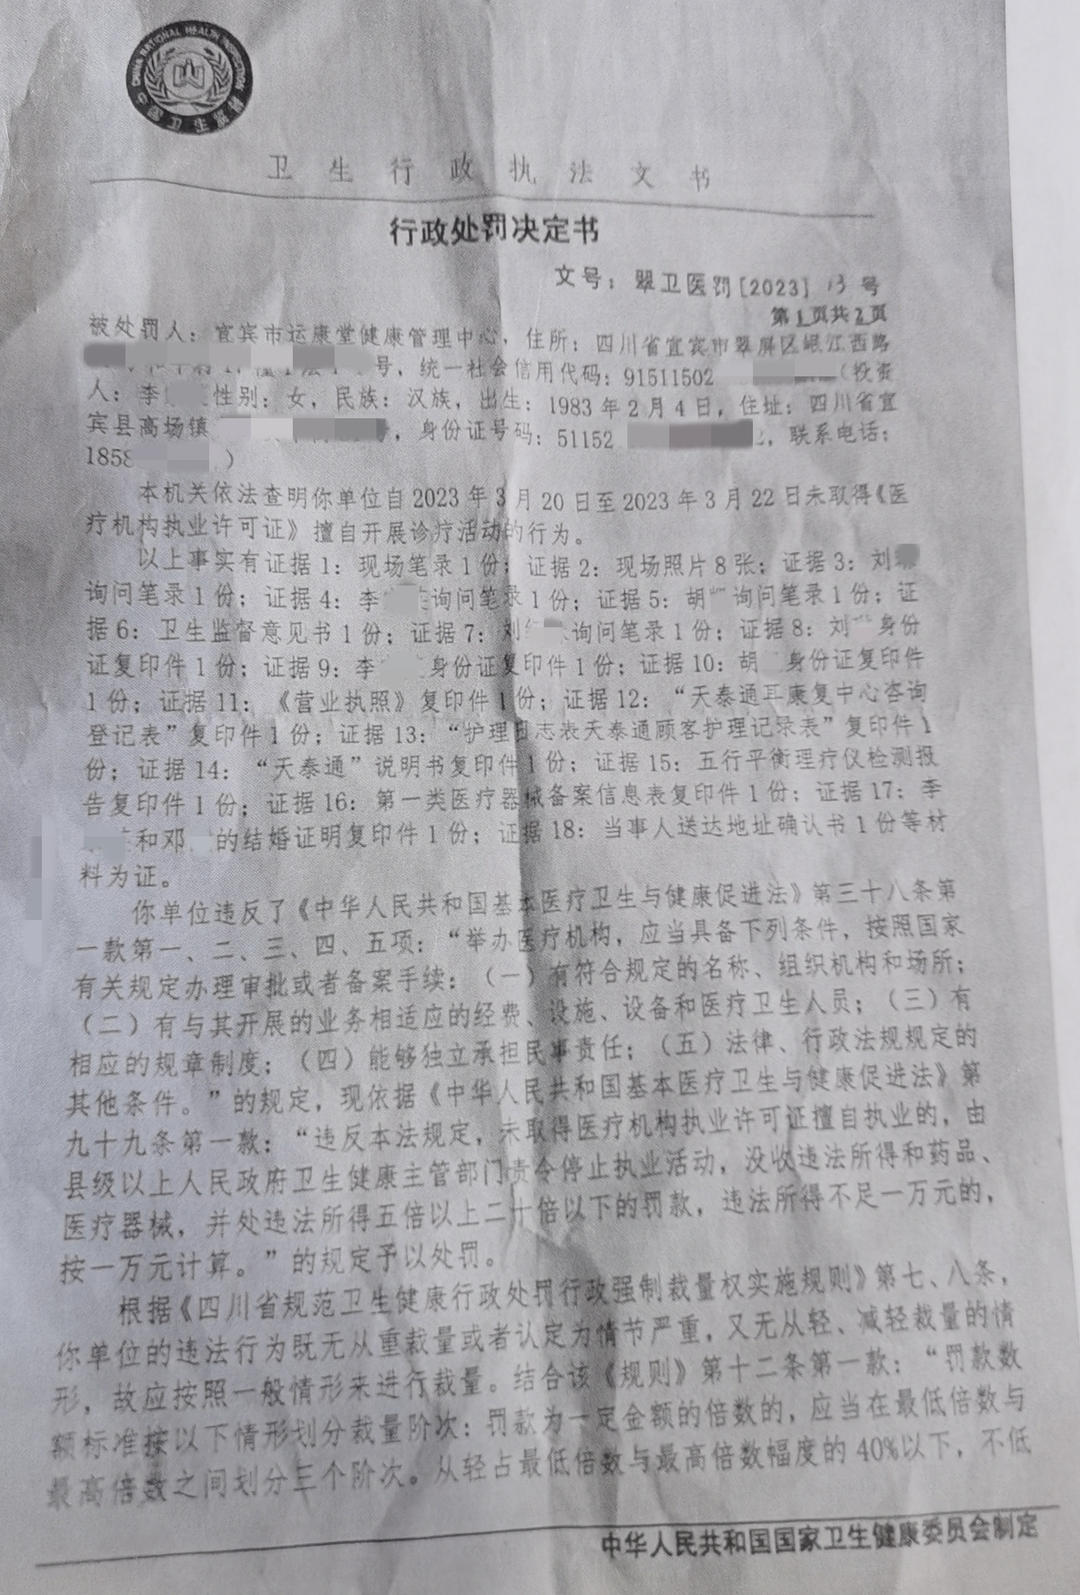 CHINA NATIONAL HEALTH INSPECTION
中国卫生监督
卫生行政执法文书
行政处罚决定书
文号：翠卫医罚[2023] 13 号
第1页共2页
被处罚人：宜宾市运康堂健康管理中心，住所：四川省宜宾市翠屏区岷江西路
号，统一社会信用代码：91511502（投资
人：李 性别：女，民族：汉族，出生：1983年2月4日，住址：四川省宜
宾县高场镇 号，身份证号码：51152 ，联系电话：
1858 ）
本机关依法查明你单位自2023年3月20日至2023年3月22日未取得《医
疗机构执业许可证》擅自开展诊疗活动的行为。
以上事实有证据1：现场笔录1份；证据2：现场照片8张；证据3：刘
询问笔录1份；证据4：李 询问笔录1份；证据5：胡 询问笔录1份；证
据6：卫生监督意见书1份；证据7：刘 询问笔录1份；证据8：刘 身份
证复印件1份；证据9：李 身份证复印件1份；证据10：胡 身份证复印件
1份；证据11：《营业执照》复印件1份；证据12：“天泰通耳康复中心咨询
登记表”复印件1份；证据13：“护理日志表天泰通顾客护理记录表”复印件1
份；证据14：“天泰通”说明书复印件1份；证据15：五行平衡理疗仪检测报
告复印件1份；证据16：第一类医疗器械备案信息表复印件1份；证据17：李
和邓 的结婚证明复印件1份；证据18：当事人送达地址确认书1份等材
料为证。
你单位违反了《中华人民共和国基本医疗卫生与健康促进法》第三十八条第
一款第一、二、三、四、五项：“举办医疗机构，应当具备下列条件，按照国家
有关规定办理审批或者备案手续：（一）有符合规定的名称、组织机构和场所；
（二）有与其开展的业务相适应的经费、设施、设备和医疗卫生人员；（三）有
相应的规章制度；（四）能够独立承担民事责任；（五）法律、行政法规规定的
其他条件。”的规定，现依据《中华人民共和国基本医疗卫生与健康促进法》第
九十九条第一款：“违反本法规定，未取得医疗机构执业许可证擅自执业的，由
县级以上人民政府卫生健康主管部门责令停止执业活动，没收违法所得和药品、
医疗器械，并处违法所得五倍以上二十倍以下的罚款，违法所得不足一万元的，
按一万元计算。”的规定予以处罚。
根据《四川省规范卫生健康行政处罚行政强制裁量权实施规则》第七、八条，
你单位的违法行为既无从重裁量或者认定为情节严重，又无从轻、减轻裁量的情
形，故应按照一般情形来进行裁量。结合该《规则》第十二条第一款：“罚款数
额标准按以下情形划分裁量阶次：罚款为一定金额的倍数的，应当在最低倍数与
最高倍数之间划分三个阶次。从轻占最低倍数与最高倍数幅度的40%以下，不低
中华人民共和国国家卫生健康委员会制定